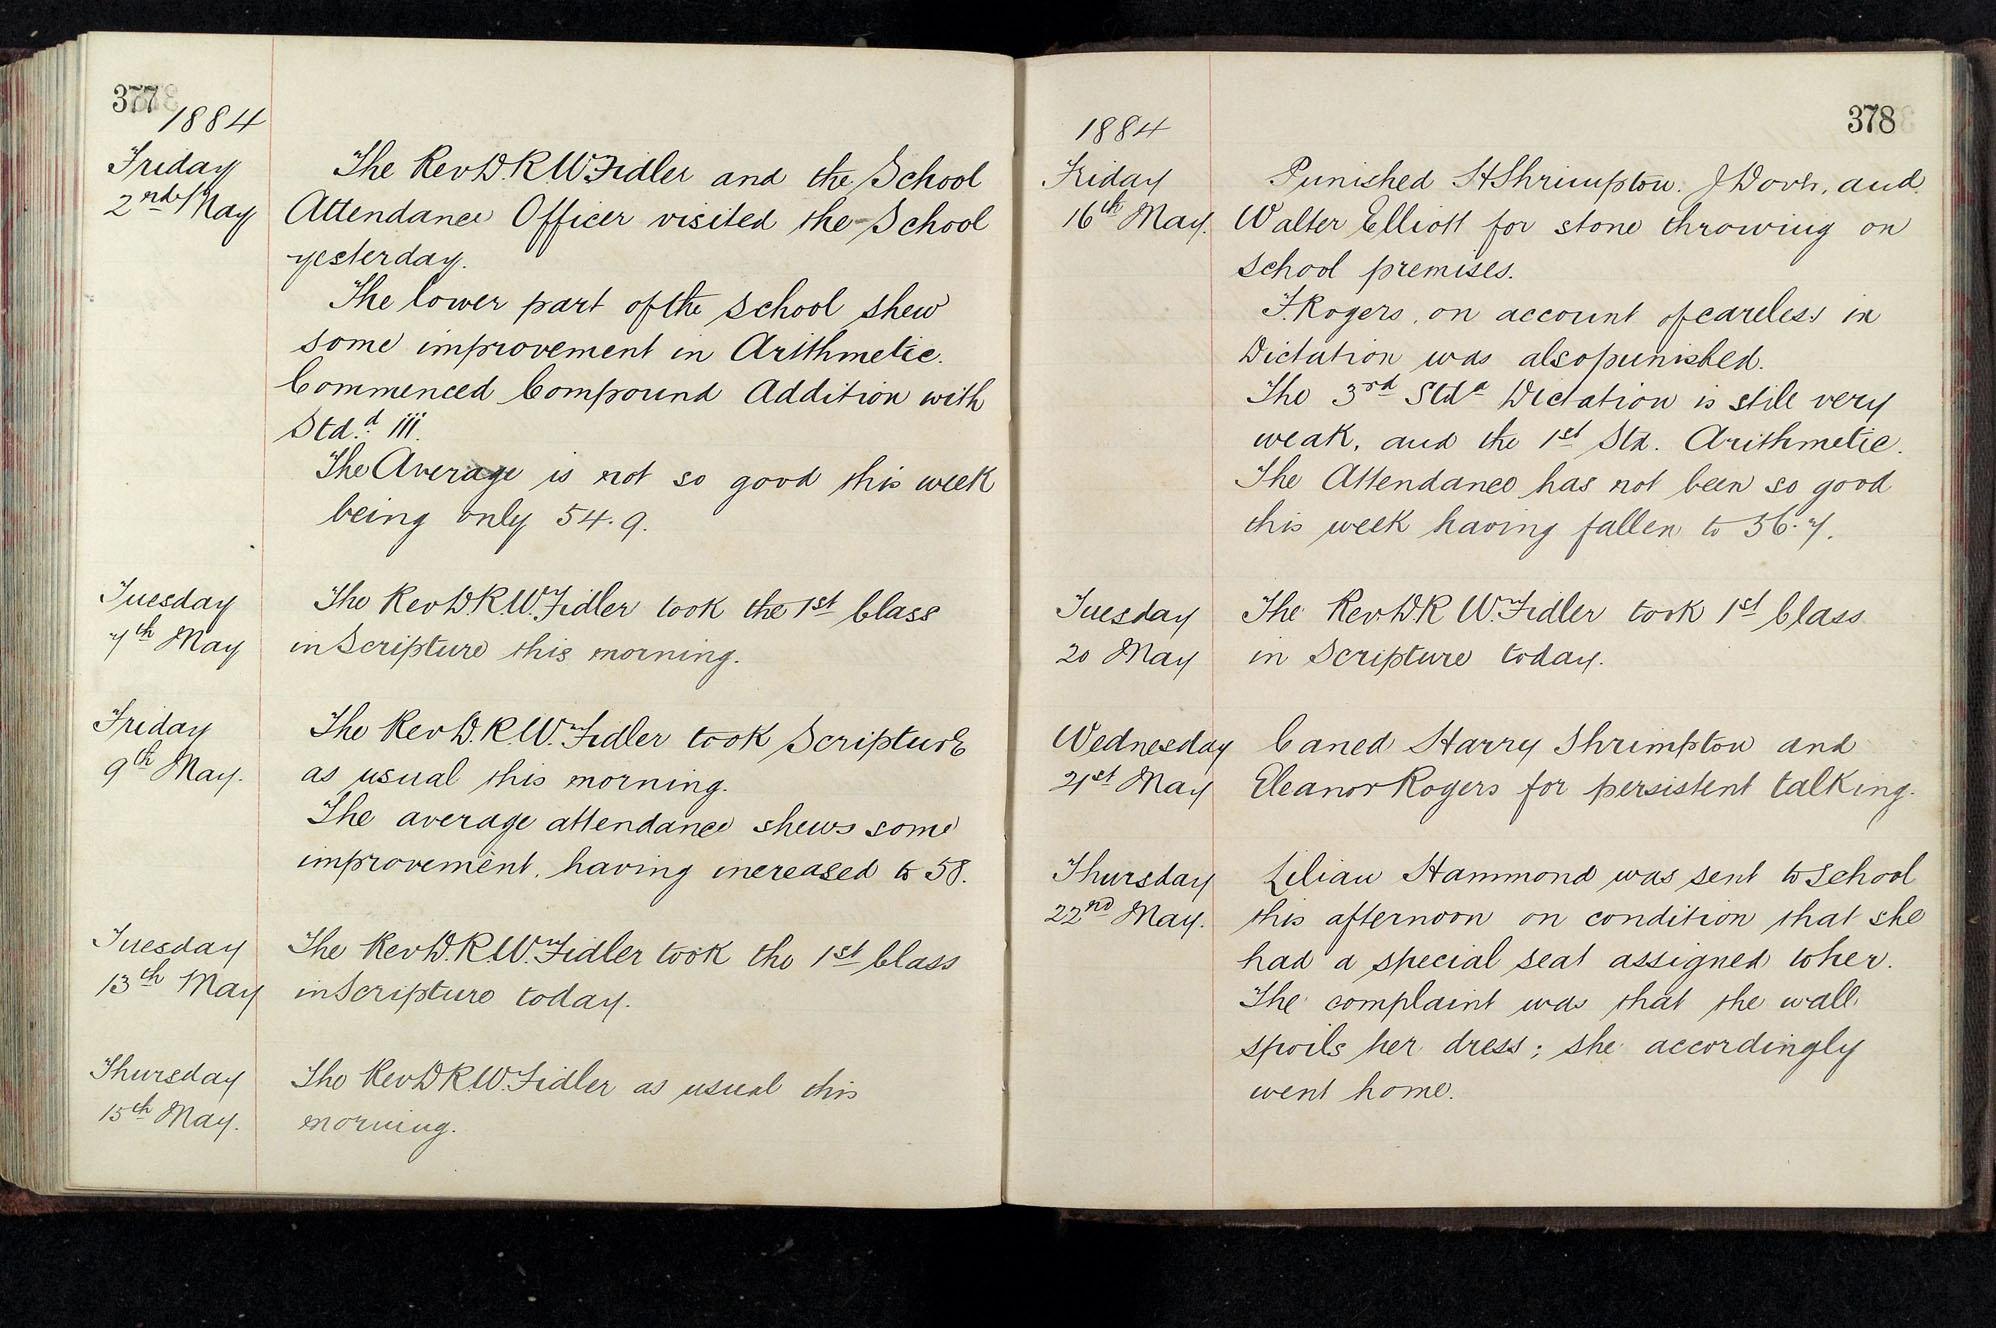 377
1884
Friday
2nd May
The Rev D. R. W. Fidler and the School
Attendance Officer visited the School
yesterday.
The lower part of the School shew
some improvement in Arithmetic.
Commenced Compound Addition with
Std.d iii.
The Average is not so good this week
being only 54.9.
Tuesday
7th May
The Rev D. R. W. Fidler took the 1st Class
in Scripture this morning.
Friday
9th May.
The Rev D. R. W. Fidler took Scripture
as usual this morning.
The average attendance shews some
improvement, having increased to 58.
Tuesday
13th May
The Rev D. R. W. Fidler took the 1st Class
in Scripture today.
Thursday
15th May.
The Rev D R. W. Fidler as usual this
morning.
378
1884
Friday
16th May.
Punished H Shrimpton. J and
Walter Elliott for stone throwing on
school premises.
F. Rogers, on account of careless in
Dictation was also punished.
The 3rd Std.d Dictation is still very
weak, and the 1st Std. Arithmetic.
The Attendance has not been so good
this week having fallen to 56.7.
Tuesday
20 May
The Rev. D. R W. Fidler took 1st Class
in Scripture today.
Wednesday
21st May
Caned Harry Shrimpton and
Eleanor Rogers for persistent talking.
Thursday
22nd May.
Lilian Hammond was sent to school
this afternoon on condition that she
had a special seat assigned to her.
The complaint was that the wall
spoils her dress; she accordingly
went home.